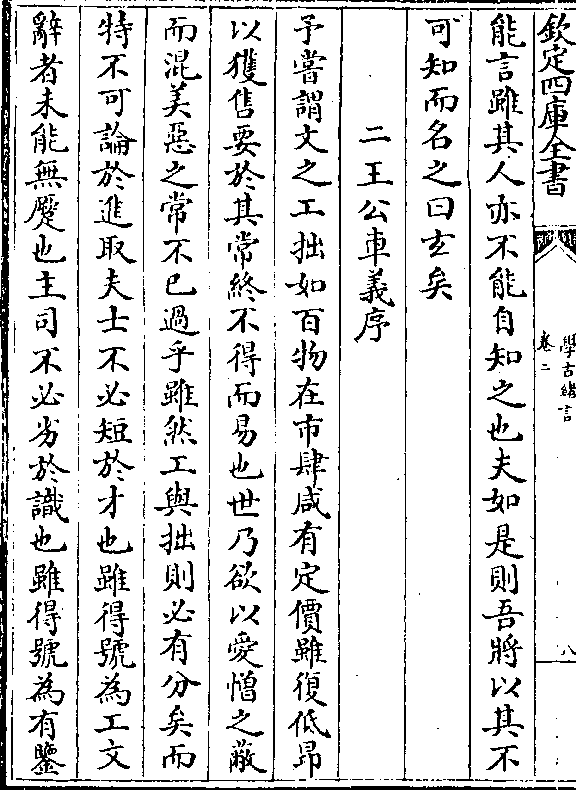 欽定四庫全書
學古緒言
卷二
八
能言雖其人亦不能自知之也夫如是則吾將以其不
可知而名之曰玄矣
二王公車義序
予嘗謂文之工拙如百物在市肆咸有定價雖復低昂
以獲售要於其常終不得而易也世乃欲以愛憎之蔽
而混美惡之常不已過乎雖然工與拙則必有分矣而
特不可論於進取夫士不必短於才也雖得號為工文
辭者未能無蹷也主司不必劣於識也雖得號為有鑒